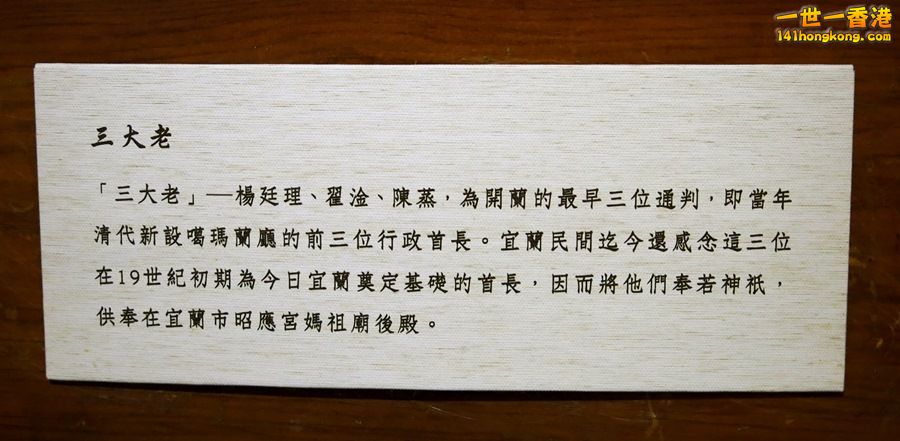 一世一香港
141hongkong.com
三大老
「三大老」─楊廷理、翟淦、陳蒸，為開蘭的最早三位通判，即當年
清代新設噶瑪蘭廳的前三位行政首長。宜蘭民間迄今還感念這三位
在19世紀初期為今日宜蘭奠定基礎的首長，因而將他們奉若神祇，
供奉在宜蘭市昭應宮媽祖廟後殿。